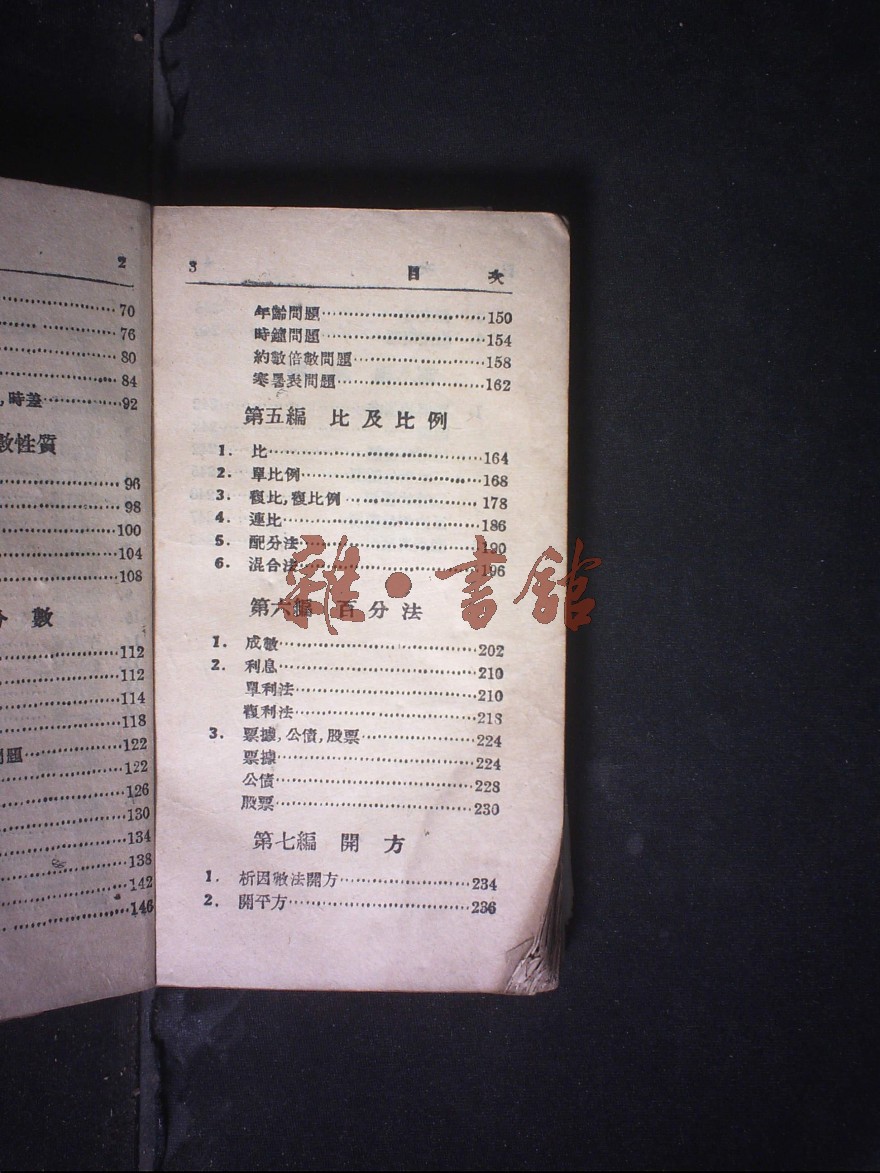 2
70
76
80
84
,時差…………92
數性質
96
98
100
104
108
分 數
112
112
114
118
問題…………122
122
126
130
134
138
142
146
3 目 次
年齡問題…………150
時鐘問題…………154
約數倍數問題…………158
寒暑表問題…………162
第五編 比及比例
1. 比…………164
2. 單比例…………168
3. 複比,複比例…………178
4. 連比…………186
5. 配分法…………190
6. 混合法…………196
雜·書館
第六編 百分法
1. 成數…………202
2. 利息…………210
單利法…………210
複利法…………218
3. 票據,公債,股票…………224
票據…………224
公債…………228
股票…………230
第七編 開 方
1. 析因數法開方…………234
2. 開平方…………236